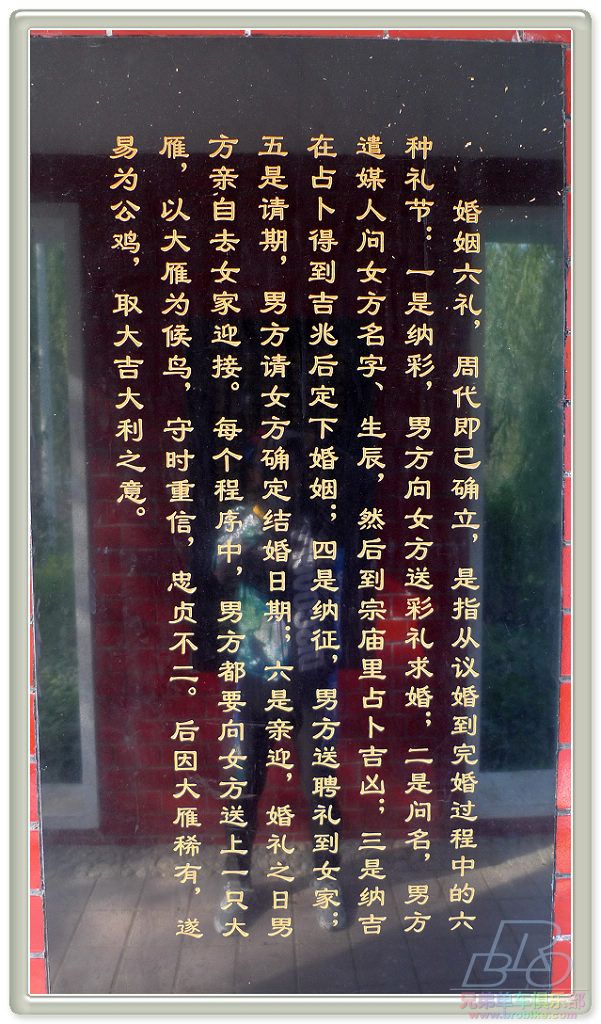 婚姻六礼，周代即已确立，是指从议婚到完婚过程中的六
种礼节：一是纳彩，男方向女方送彩礼求婚；二是问名，男方
遣媒人问女方名字、生辰，然后到宗庙里占卜吉凶；三是纳吉
在占卜得到吉兆后定下婚姻；四是纳征，男方送聘礼到女家；
五是请期，男方请女方确定结婚日期；六是亲迎，婚礼之日男
方亲自去女家迎接。每个程序中，男方都要向女方送上一只大
雁，以大雁为候鸟，守时重信，忠贞不二。后因大雁稀有，遂
易为公鸡，取大吉大利之意。
BRO
兄弟单车俱乐部
www.brobike.com